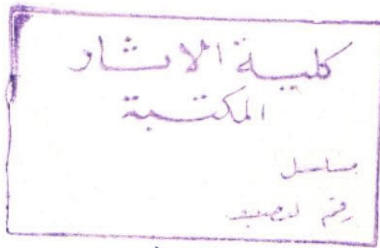 كلية الاثار
المكتبة
مسلسل
رقم